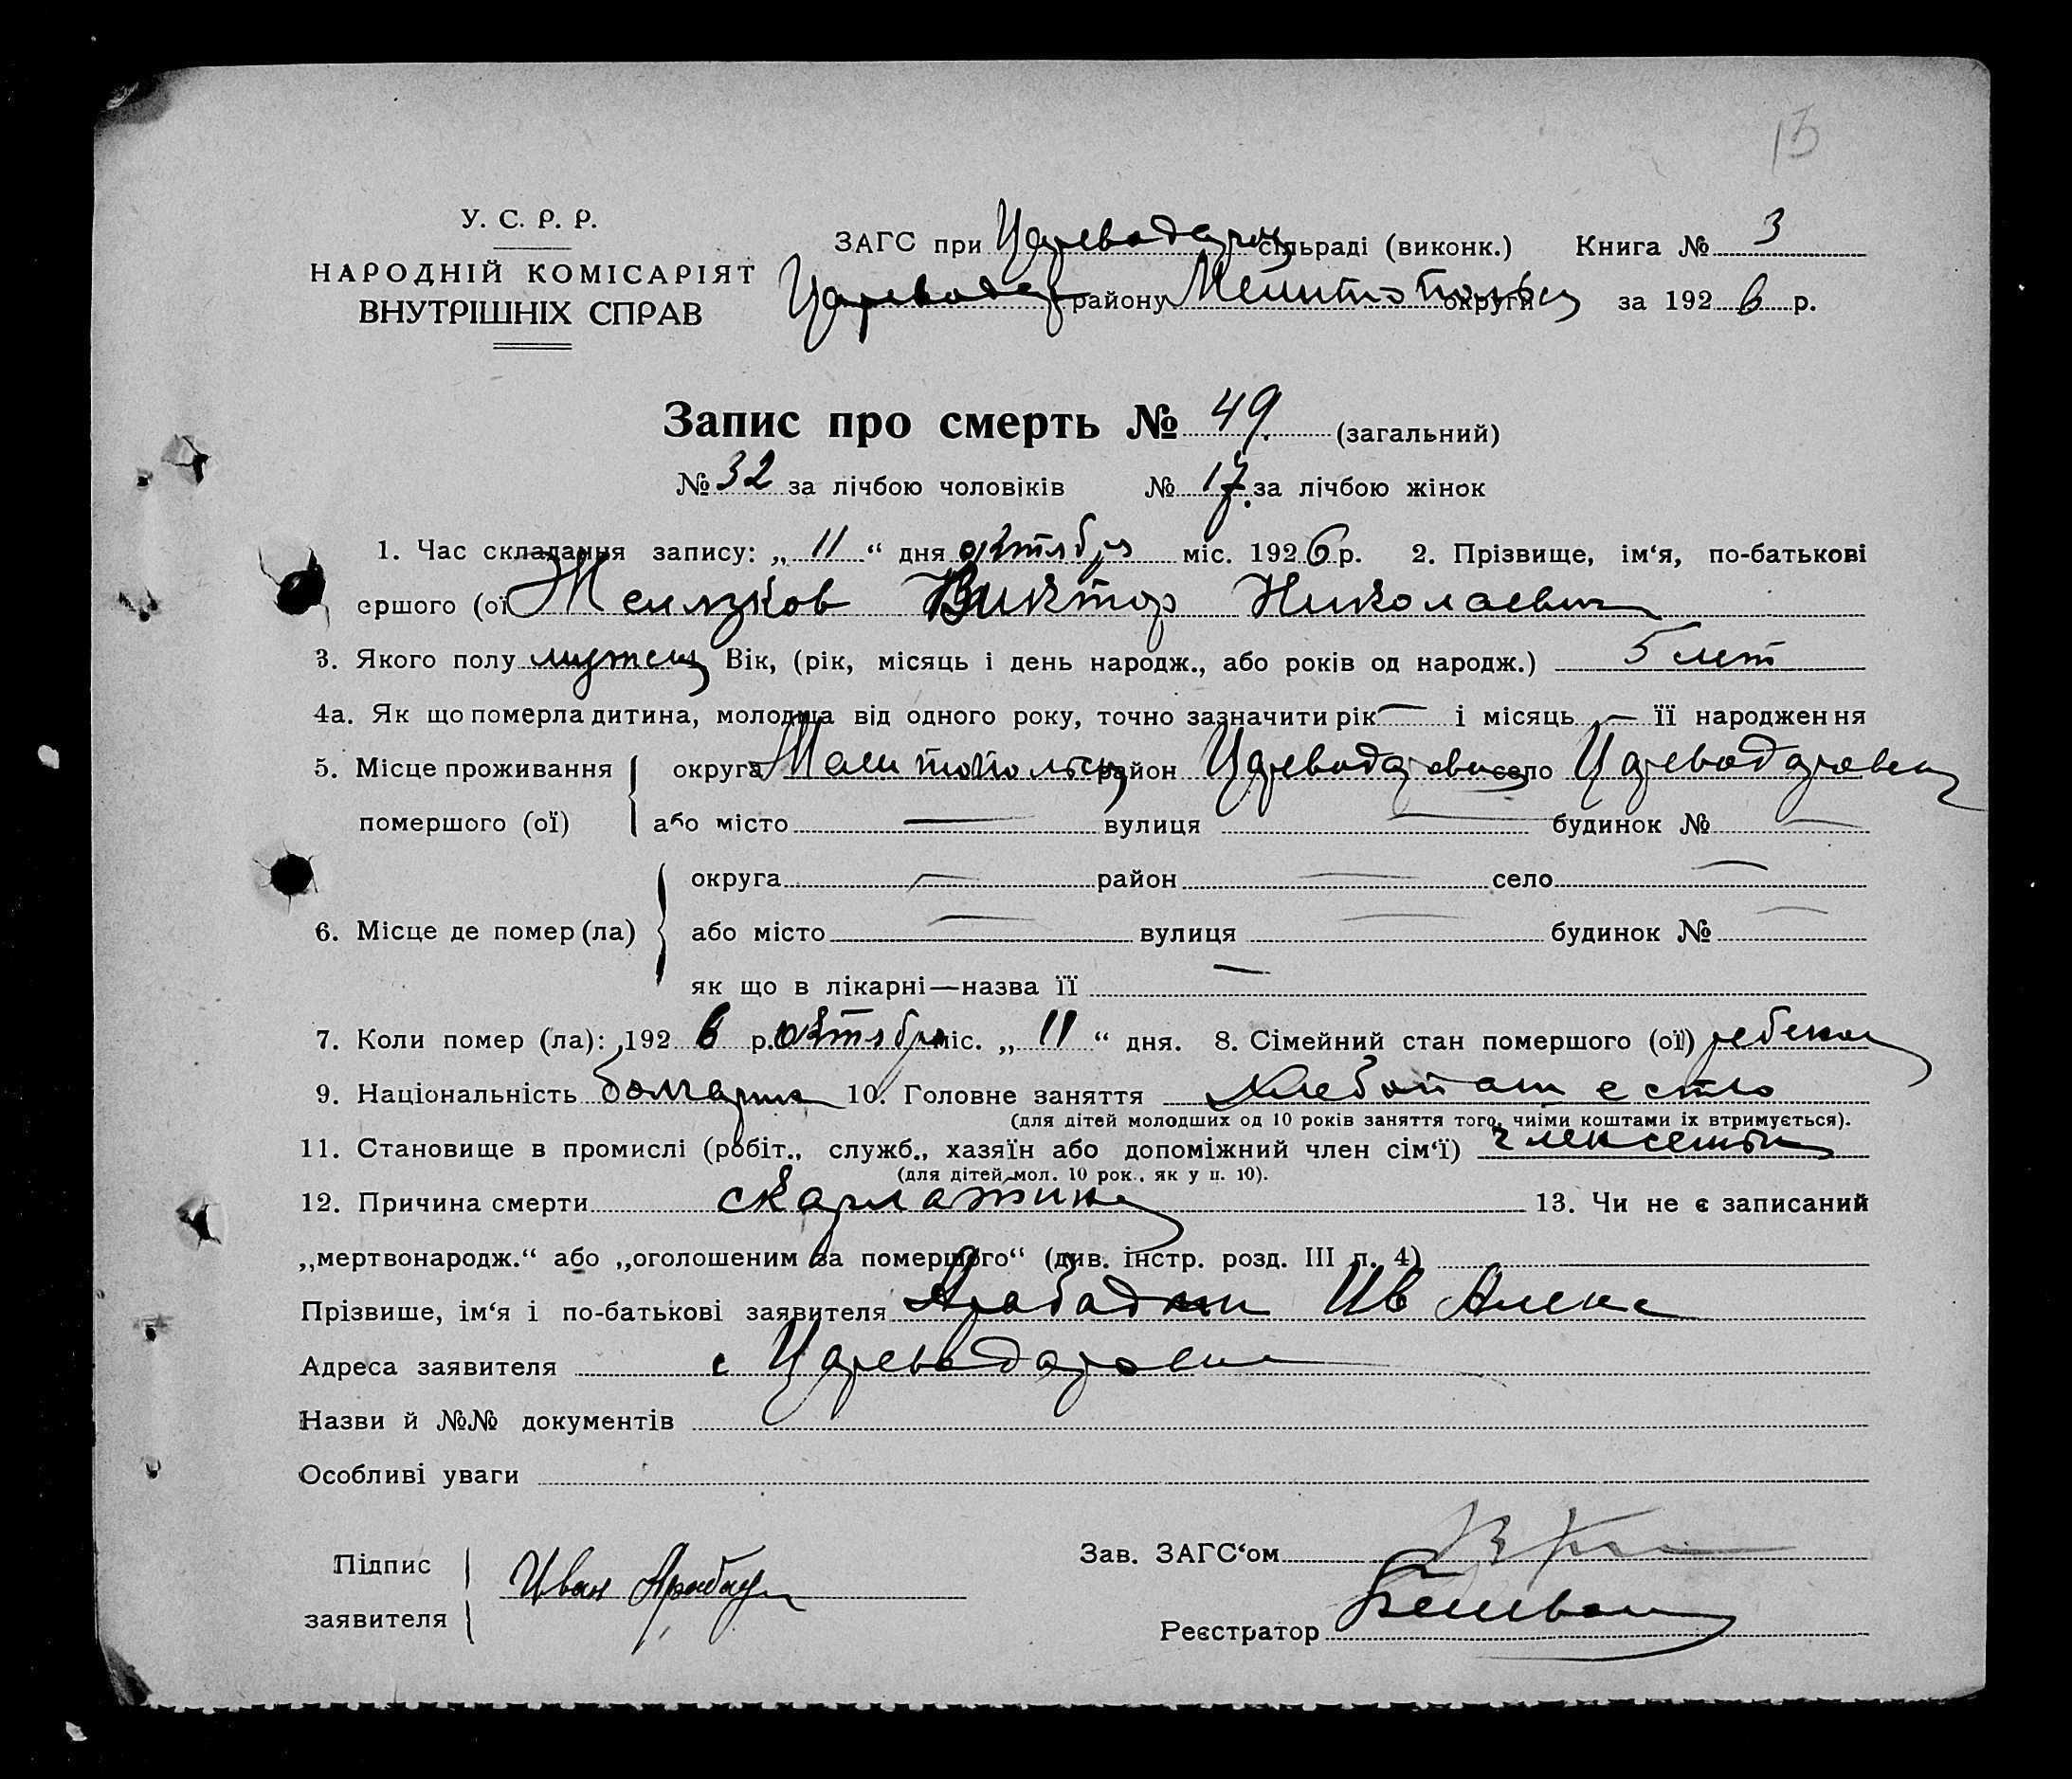 13
У. С. Р. Р.
НАРОДНІЙ КОМІСАРІЯТ
ВНУТРІШНІХ СПРАВ
ЗАГС при Царевода сільраді (виконк.) Книга № 3
Царевода району Мелитопольск округи за 1926 р.
Запис про смерть № 49 (загальний)
№ 32 за лічбою чоловіків № 17 за лічбою жінок
1. Час складання запису: „ 11 “ дня октября міс. 1926 р. 2. Прізвище, ім‘я, по-батькові
ершого (ої Желязков Виктор Николаевич
3. Якого полу мужск Вік, (рік, місяць і день народж., або років од народж.) 5 лет
4а. Як що померла дитина, молодша від одного року, точно зазначити рік — і місяць — її народження
5. Місце проживання округа Мелитопольск район Цареводаровск село Цареводаровка
помершого (ої) або місто — вулиця — будинок № —
округа — район — село —
6. Місце де помер (ла) або місто — вулиця — будинок № —
як що в лікарні—назва її —
7. Коли помер (ла): 1926 р. октября міс. „ 11 “ дня. 8. Сімейний стан помершого (ої) ребенок
9. Національність болгарин 10. Головне заняття хлебопашество
(для дітей молодших од 10 років заняття того, чиїми коштами їх втримується).
11. Становище в промислі (робіт., служб., хазяїн або допоміжний член сім‘ї) член семьи
(для дітей мол. 10 рок., як у п. 10).
12. Причина смерти скарлатина 13. Чи не є записаний
„мертвонародж.“ або „оголошеним за помершого“ (див. інстр. розд. III п. 4)
Прізвише, ім‘я і по-батькові заявителя Арабаджи Ив Алекс
Адреса заявителя с Цареводаровка
Назви й №№ документів
Особливі уваги
Підпис
заявителя Иван Арабаджи
Зав. ЗАГС‘ом
Реєстратор